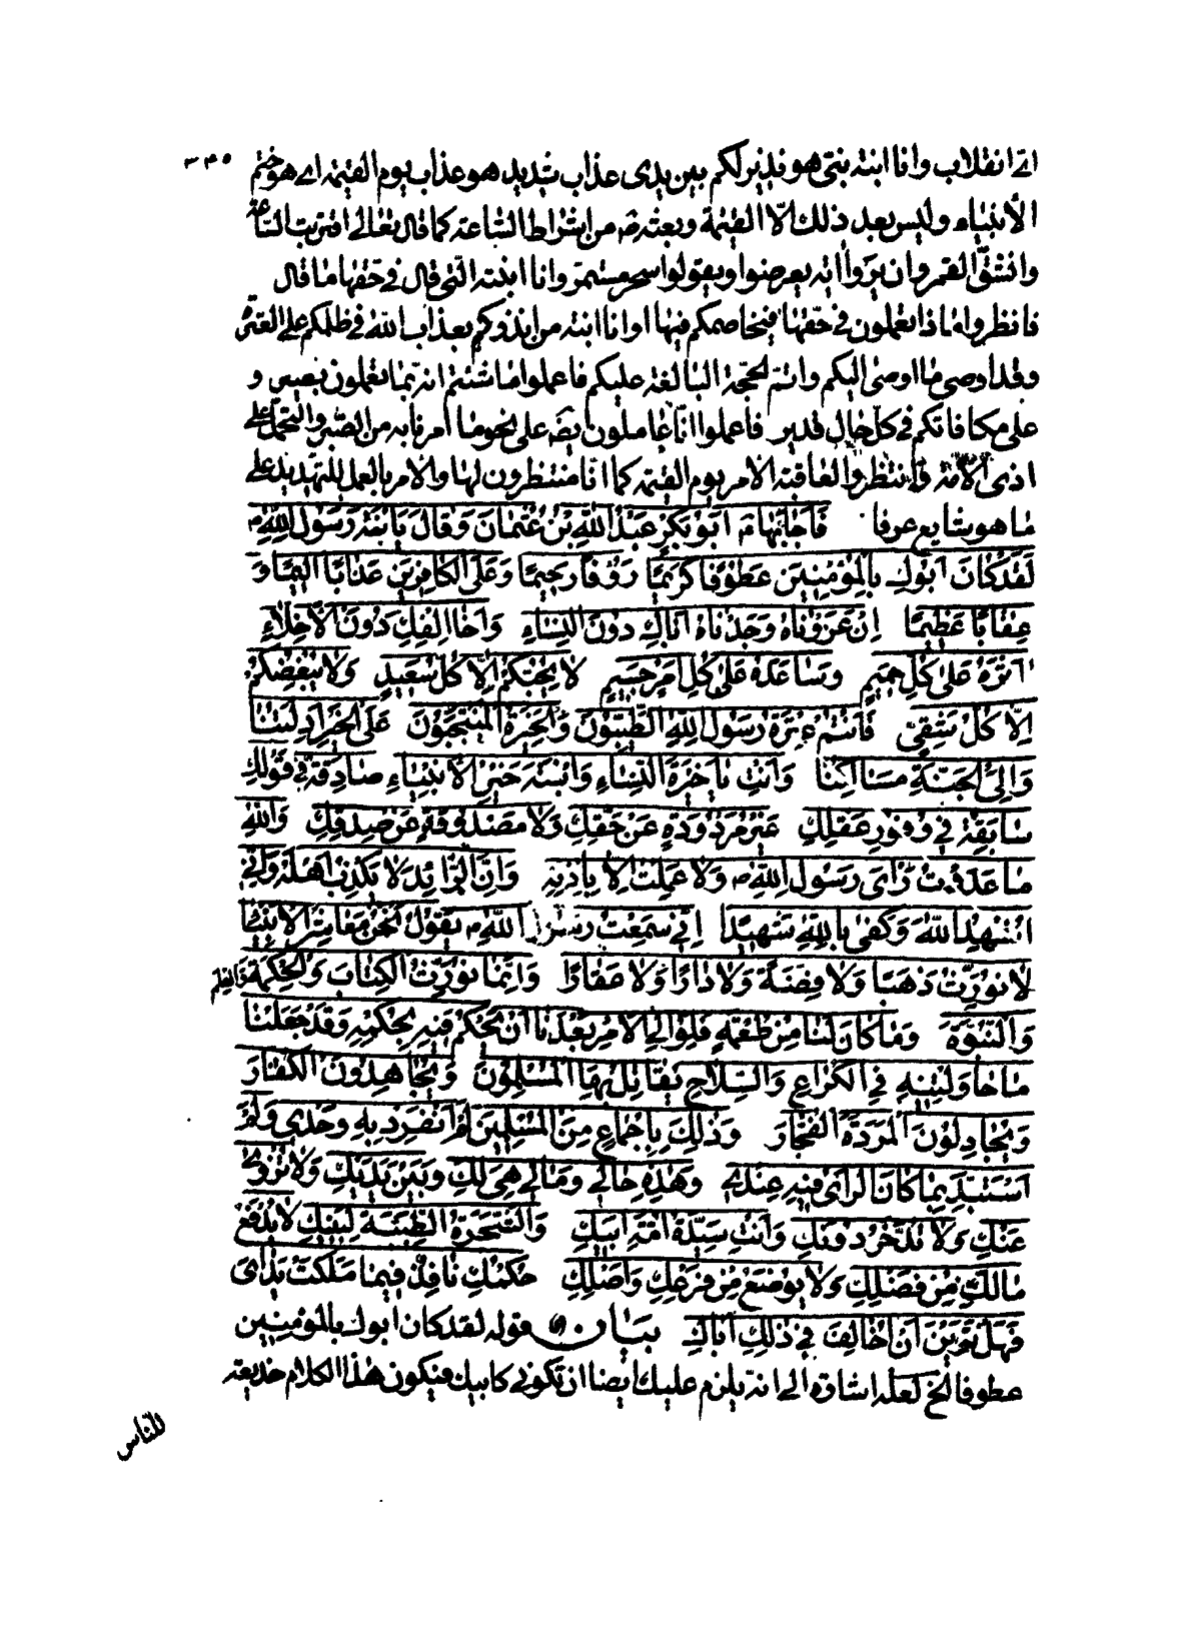 اىّ انقلاب وانا ابنة نبىّ هو نذير لكم بين يدى عذاب شديد هو عذاب يوم القيمة اى هو ختم ٣٣٥
الأنبياء وليس بعد ذلك الّا القيمة وبعثته من اشراط الساعة كما قال تعالى اقتربت الساعة
وانشقّ القمر وان يروا اية يعرضوا ويقولوا سحر مستمرّ وانا ابنته الّتى قال فى حقّها ما قال
فانظروا ماذا تعملون فى حقّها فيخاصمكم فيها او انا ابنة من انذركم بعذاب الله فى ظلمكم على العترة
وقد اوصى ما اوصى اليكم واتمّ الحجّة البالغة عليكم فاعملوا ما شئتم انه بما تعملون بصير و
على مكافاتكم فى كلّ حال قدير فاعملوا انّا عاملون ايضا على نحو ما امرنا به من الصّبر والتحمّل على
اذى الأمّة وانتظروا العاقبة الامر يوم القيمة كما انّا منتظرون لها والامر بالعمل للتهديد على
ما هو شايع عرفا فَاَجابَها اَبُو بَكْرٍ عَبْدُ اللهِ بْنُ عُثْمانَ وَقالَ يَا بْنَةَ رَسُولِ اللهِ
لَقَدْ كانَ اَبُوكِ بِالْمُؤْمِنينَ عَطُوفًا كَريمًا رَؤُفًا رَحيمًا وَعَلَى الْكافِرينَ عَذابًا اَليمًا وَ
عِقابًا عَظيمًا اِنْ عَزَوْناهُ وَجَدْناهُ اَباكِ دُونَ النِّساءِ وَاَخا اِلْفِكِ دُونَ الْاَخِلّاءِ
اثَرَهُ عَلى كُلِّ حَميمٍ وَساعَدَهُ عَلى كُلِّ اَمْرٍ جَسيمٍ لا يُحِبُّكُمْ اِلّا كُلُّ سَعيدٍ وَلا يُبْغِضُكُمْ
اِلّا كُلُّ شَقِىٍّ فَاَنْتُمْ عِتْرَةُ رَسُولِ اللهِ الطَّيِّبُونَ وَالْخِيَرَةُ الْمُنْتَجَبُونَ عَلَى الْخَيْرِ اَدِلَّتُنا
وَاِلَى الْجَنَّةِ مَسالِكُنا وَاَنْتِ يا خِيَرَةَ النِّساءِ وَابْنَةَ خَيْرِ الْاَنْبِياءِ صادِقَةٌ فى قَوْلِكِ
سابِقَةٌ فى وُفُورِ عَقْلِكِ غَيْرُ مَرْدُودَةٍ عَنْ حَقِّكِ وَلا مَصْدُودَةٍ عَنْ صِدْقِكِ وَاللهِ
ما عَدَوْتُ رَاْىَ رَسُولِ اللهِ وَلا عَمِلْتُ اِلّا بِاِذْنِهِ وَاِنَّ الرّائِدَ لا يَكْذِبُ اَهْلَهُ وَاِنّى
اُشْهِدُ اللهَ وَكَفى بِاللهِ شَهيدًا اِنّى سَمِعْتُ رَسُولَ اللهِ يَقُولُ نَحْنُ مَعاشِرَ الْاَنْبِياءِ
لا نُوَرِّثُ ذَهَبًا وَلا فِضَّةً وَلا دارًا وَلا عَقارًا وَاِنَّما نُوَرِّثُ الْكِتابَ وَالْحِكْمَةَ وَالْعِلْمَ
وَالنُّبُوَّةَ وَما كانَ لَنا مِنْ طُعْمَةٍ فَلِوَلِىِّ الْاَمْرِ بَعْدَنا اَنْ يَحْكُمَ فيهِ بِحُكْمِهِ وَقَدْ جَعَلْنا
ما حاوَلْتِهِ فِى الْكُراعِ وَالسِّلاحِ يُقاتِلُ بِهَا الْمُسْلِمُونَ وَيُجاهِدُونَ الْكُفّارَ
وَيُجادِلُونَ الْمَرَدَةَ الْفُجّارَ وَذلِكَ بِاِجْماعٍ مِنَ الْمُسْلِمينَ لَمْ اَنْفَرِدْ بِهِ وَحْدى وَلَمْ
اَسْتَبِدَّ بِما كانَ الرَّاْىُ فيهِ عِنْدى وَهذِهِ حالى وَمالى هِىَ لَكِ وَبَيْنَ يَدَيْكِ وَلا نَزْوى
عَنْكِ وَلا نَدَّخِرُ دُونَكِ وَاَنْتِ سَيِّدَةُ اُمَّةِ اَبيكِ وَالشَّجَرَةُ الطَّيِّبَةُ لِبَنيكِ لا يُدْفَعُ
مالَكِ مِنْ فَضْلِكِ وَلا يُوضَعُ مِنْ فَرْعِكِ وَاَصْلِكِ حُكْمُكِ نافِذٌ فيما مَلَكَتْ يَداىَ
فَهَلْ تَرَيْنَ اَنْ اُخالِفَ فى ذلِكِ اَباكِ بيان قوله لقد كان ابوك بالمؤمنين
عطوفا الخ لعله اشارة الى انه يلزم عليك ايضا ان تكونى كابيك فيكون هذا الكلام خديعة
للنّاس